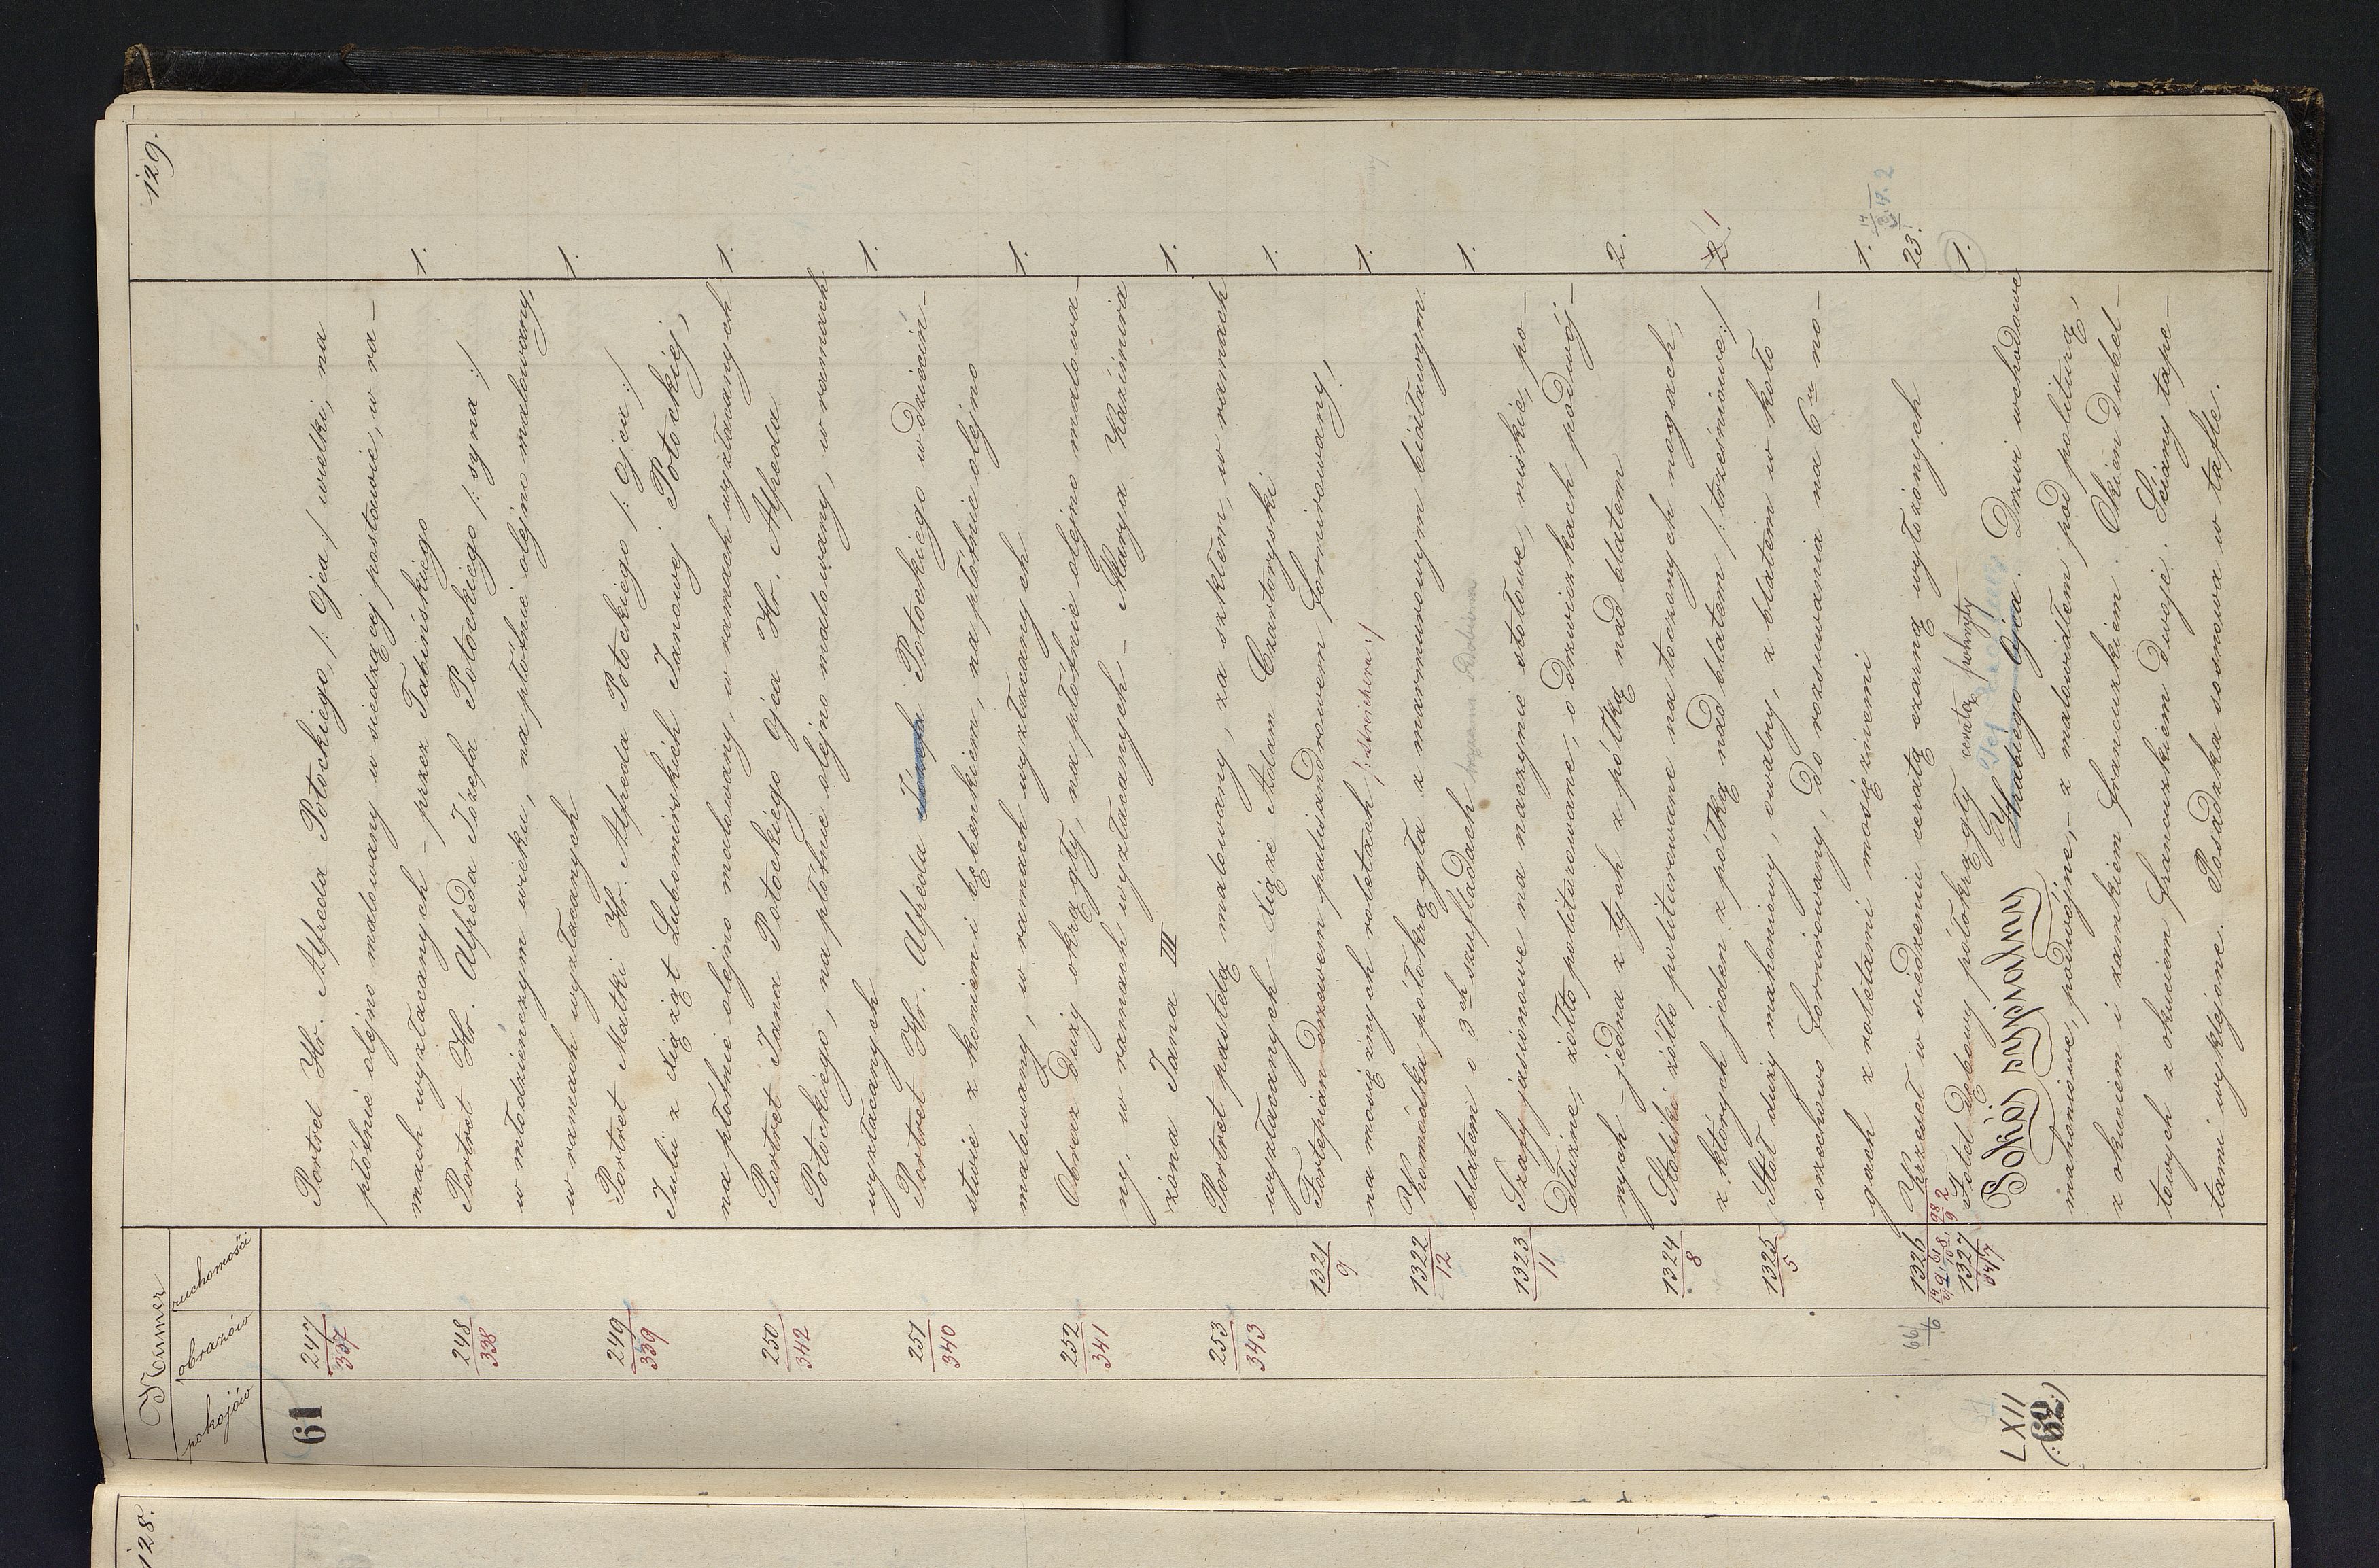 129.
Numer
pokojów obrazów ruchomości
61
247
337
Portret Hr. Alfreda Potockiego, /: Ojca :/ wielki, na
płótnie olejno malowany w siedzącej postawie, w ra-
mach wyzłacanych – przez Tabińskiego 1.
248
338
Portret Hr. Alfreda Józefa Potockiego /: syna :/
w młodzienczym wieku, na płótnie olejno malowany,
w ramach wyzłacanych 1.
249
339
Portret Matki Hr. Alfreda Potockiego /: Ojca :/
Julii z Xiążąt Lubomirskich Janowej Potockiej,
na płótnie olejno malowany, w ramach wyzłacanych 1.
250
342
Portret Jana Potockiego Ojca Hr. Alfreda
Potockiego, na płótnie olejno malowany, w ramach
wyzłacanych 1.
251
340
Portret Hr. Alfreda Józefa Potockiego w dziecin-
stwie z koniem i bębenkiem, na płótnie olejno
malowany, w ramach wyzłacanych 1.
252
341
Obraz duży okrągły, na płótnie olejno malowa-
ny, w ramach wyzłacanych – Marya Kazimira
żona Jana III 1.
253
343
Portret pastelą malowany, za szkłem, w ramach
wyzłacanych – Xiąże Adam Czartoryski 1.
1321
9
Fortepian drzewem palisandrowem fornirowany,
na mosiężnych roletach /: Streichera :/ 1.
1322
12
Komódka półokrągła z marmurowym białawym
blatem o 3ch szufladach 1.
1323
11
Szafy jasionowe na naczynie stołowe, niskie, po-
dłużne, żółto politurowane, o drzwiczkach podwój-
nych – jedna z tych z półką nad blatem 2.
1324
8
Stoliki żółto politurowane na toczonych nogach,
z których jeden z półką nad blatem /: trzciniowe :/ 2. 1
1325
5
Stół duży mahoniowy, owalny, z blatem w koło
orzechwo fornirowany, do rozsuwania na 6u no-
gach z roletami mosiężnemi 1.
1326
Krzeseł w siedzeniu ceratą czarną wyłożonych 23.
1327
347
Fotel dębowy półokrągły ceratą pokryty 1.
LXII
(: 62 :)
Pokój sypialny Hrabiego Ojca. Drzwi wchodowe
mahoniowe, podwójne, – z malowidłem pod politurą,
z okuciem i zamkiem francuzkiem. Okien dubel-
towych z okuciem francuzkiem dwoje. Ściany tape-
tami wyklejone. Posadzka sosnowa w tafle.
128.